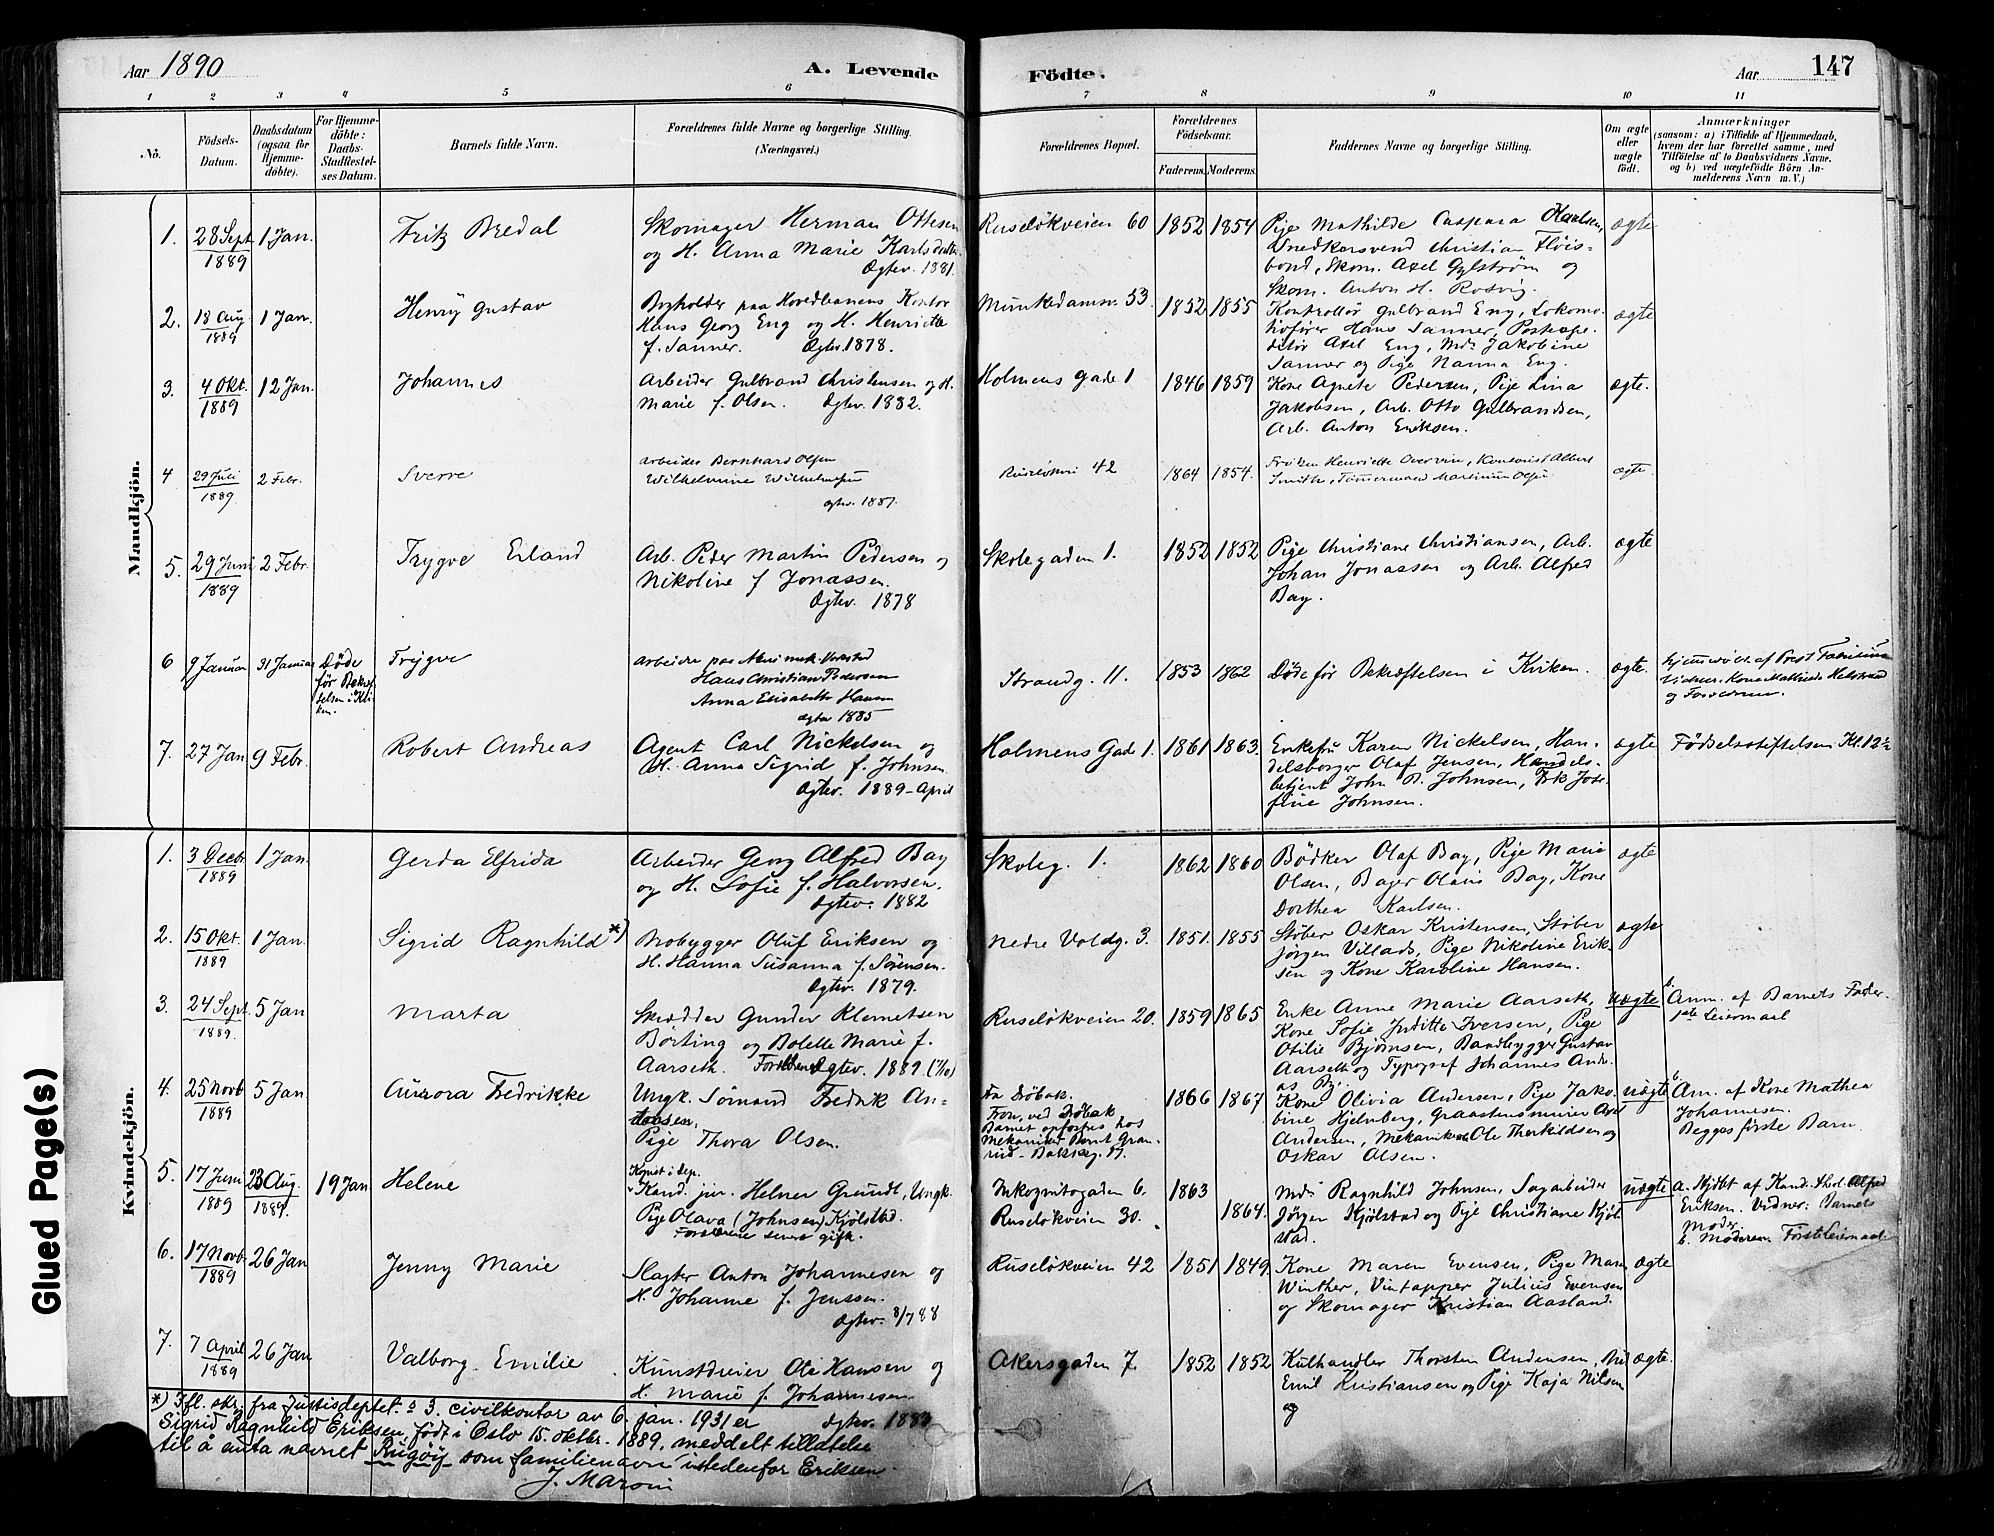 Aar 1890
A. Levende
Födte.
Aar
147
1 2 3 4 5 6 7 8 9 10 11
No.
Födsels-
Datum.
Daabsdatum
(ogsaa for
Hjemme-
döbte).
For Hjemme-
döbte:
Daabs-
Stadfæstel-
ses Datum.
Barnets fulde Navn.
Forældrenes fulde Navne og borgerlige Stilling.
(Næringsvei.)
Forældrenes Bopæl.
Forældrenes
Födselsaar.
Faderens. Moderens.
Faddernes Navne og borgerlige Stilling.
Om ægte
eller
uægte
födt.
Anmærkninger
(saasom: a) i Tilfælde af Hjemmedaab,
hvem der har forrettet samme, med
Tilföielse af to Daabsvidners Navne,
og b) ved uægtefödte Börn An-
melderens Navn m. V.)
Mandkjön.
1. 28 Sept 1889
1 Jan.
Fritz Bredal
Skomager Herman Ottesen
og H. Anna Marie Karlsdatter
Ægtev. 1881.
Ruseløkveien 60
1852 1854
Pige Mathilde Caspara Karlsen,
Snedkersvend Christian Fløis-
bond, Skom. Axel Gylstrøm og
Skom. Anton H. Rosvig.
ægte
2. 18 Aug 1889
1 Jan.
Henry Gustav
Bogholder paa Hovedbanens Kontor
Hans Georg Eng og H. Henriette
f. Sanner. Ægtev. 1878.
Munkedamsv. 53.
1852 1855
Kontrollør Gulbrand Eng, Lokomo-
tivfører Hans Sanner, Postexpe-
ditør Axel Eng, Md. Jakobine
Sanner og Pige Nanna Eng.
ægte
3. 4 Okt. 1889
12 Jan.
Johannes
Arbeider Gulbrand Christensen og H.
Marie f. Olsen. Ægtev. 1882.
Holmens gade 1
1846 1859
Kone Agnete Pedersen, Pige Lina
Jakobsen, Arb. Otto Gulbrandsen,
Arb. Anton Eriksen.
ægte.
4 29 Juli 1889
2 Febr.
Sverre
Arbeider Bernhard Olsen
Wilhelmine Wilhelmsen
ægtev. 1887.
Ruseløkvei 42
1864 1854.
Frøken Henriette Overvien, Kontorist Albert
Smith, Tømmermand Martinius Olsen
ægte
5. 29 Juni 1889
2 Febr.
Trygve Erland
Arb. Peder Martin Pedersen og
Nikoline f Jonassen.
Ægtev. 1878
Skolegaden 1.
1852 1852
Pige Christiane Christiansen, Arb.
Johan Jonassen og Arb. Alfred
Bay.
ægte
6 9 Januar
31 Januar
Døde
før Bekræf-
telsen i Kir-
ken.
Trygve
Arbeider paa Akers mek. Verksted
Hans Christian Pedersen
Anna Elisabeth Hansen
ægtev 1885
Strandg. 11.
1853 1862
Døde før Bekræftelsen i Kirken.
ægte.
Hjemmedøbt af Prest Fabritius
Vidner: Kone Mathilde Helstrad
og Forældrene.
7. 27 Jan
9 Febr.
Robert Andreas
Agent Carl Nickelsen og
H. Anna Sigrid f. Johnsen
Ægtev. 1889 - April
Holmens Gade 1.
1861 1863.
Enkefru Karen Nickelsen, Han-
delsborger Olaf Jensen, Handels-
betjent John B. Johnsen, Frk Jose-
fine Johnsen.
ægte
Fødselsstiftelsen Kl. 12 ½
Kvindekjön.
1. 3 Decbr 1889
1 Jan.
Gerda Elfrida
Arbeider Georg Alfred Bay
og H. Sofie f. Halvorsen.
Ægtev. 1882
Skoleg. 1.
1862 1860
Bødker Olaf Bay, Pige Marie
Olsen, Bager Olaus Bay, Kone
Dorthea Karlsen.
ægte
2. 15 Okt. 1889
1 Jan.
Sigrid Ragnhild *)
Brobygger Oluf Eriksen og
H. Hanna Susanna f. Sørensen.
Ægtev. 1879.
Nedre Voldg. 3.
1851. 1855
Støber Oskar Kristensen, Støber
Jørgen Villads, Pige Nikoline Erik-
sen og Kone Karoline Hansen.
ægte
3. 24 Sept. 1889.
5 Jan
Marta
Skrædder Gunder Klemetsen
Børting og Bolette Marie f.
Aarseth. Forældrene Ægtev. 1889
Ruseløkveien 20.
1859 1865
Enke Anne Marie Aarseth,
Kone Sofie Juditte Iversen, Pige
Otilie Bjørnsen, Baadbygger Gustav
Aarseth og Typograf Johannes Andre-
as
uægte
b. Anm. af Barnets Fader.
1ste Leiermaal
4. 25 Novb 1889
5 Jan
Aurora Fredrikke
Ungk. Sømand Fredrik An-
Pige Thora Olsen.
Fa Drøbak.
Barnet opfostres hos
1866 1867
Kone Olivia Andersen, Pige Jako-
bine Hjelnberg, Graastensmurer Axel
Andersen, Mekaniker Ole Therkildsen og
Oskar Olsen.
uægte
b. Am. af Kone Mathea
Johannesen.
Begges første Barn.
5. 17 Juni 1889
23 Aug. 1889.
19 Jan
Helene
Kopist i dep.
Kand. jur. Helner Grundt, Ungk.
Pige Olava (Johnsen) Kjølstad.
Forældrene senere gift.
Inkognitogaden 6.
Ruseløkveien 30.
1863
1864.
Md. Ragnhild Johnsen, Sagarbeider
Jørgen Kjølstad og Pige Christiane Kjøl-
stad.
uægte
a. Hjdbt af Kand. theol. Alfred
Eriksen. Vidner: Barnets
Moder.
b. Moderen. Første Leiermaal
6. 17 Novb. 1889
26 Jan
Jenny Marie
Slagter Anton Johannesen og
H. Johanne f. Jenssen.
Ægtev. 8/7 88
Ruseløkveien 42
1851 1849.
Kone Maren Evensen, Pige Maren
Winther, Vintapper Julius Evensen
og Skomager Kristian Aasland.
ægte
7. 7 April 1889
26 Jan
Valborg Emilie
Kunstdreier Ole Hansen og
H. Marie f. Johannesen.
ægtev. 1883
Akersgaden 7.
1852 1852
Kulhandler Thorsten Andensen,
Emil Kristiansen og Pige Kaja Nilsen
og
ægte.
*) Ifl. skr. fra Justisdeptet. s 3. civilkontor av 6. jan. 1931 er
Sigrid Ragnhild Eriksen, født i Oslo 15. oktbr. 1889, meddelt tillatelse
til å anta navnet Rugøy som familienavn istedenfor Eriksen.
Glued Page(s)